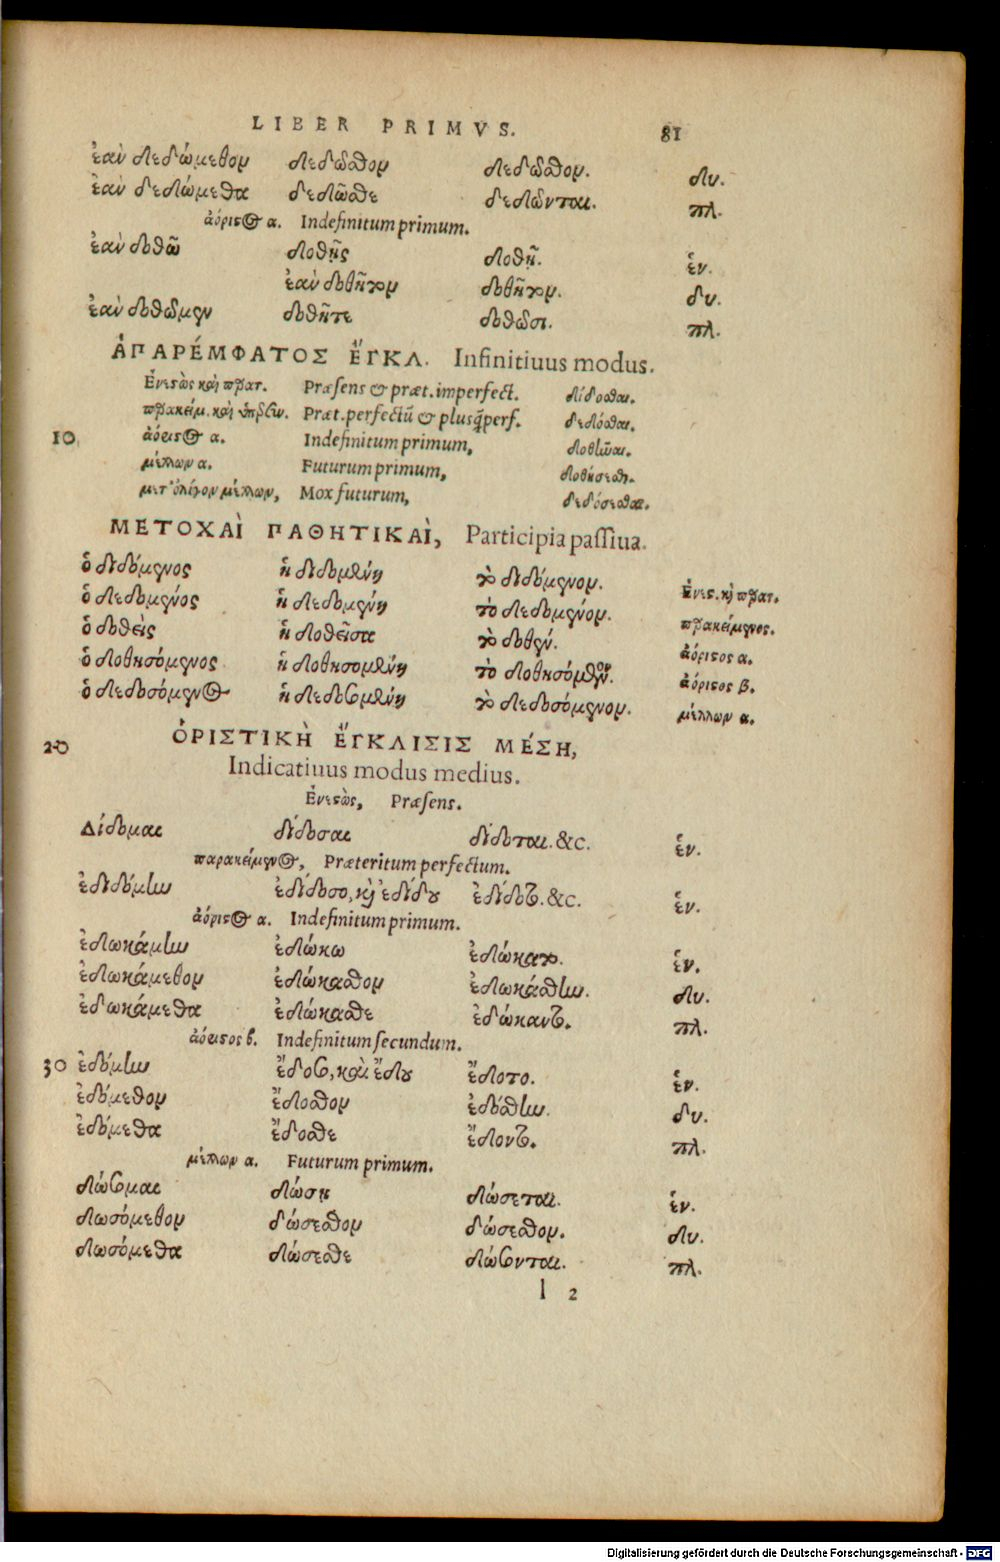 LIBER PRIMVS. 81
ἐὰν δεδώμεθον δεδῶσθον δεδῶσθον. δυ.
ἐὰν δεδώμεθα δεδῶσθε δεδῶνται. πλ.
ἀόριστος α. Indefinitum primum.
ἐὰν δοθῶ δοθῇς δοθῇ. ἑν.
ἐὰν δοθῆτον δοθῆτον. δυ.
ἐὰν δοθῶμεν δοθῆτε δοθῶσι. πλ.
ἈΠΑΡΈΜΦΑΤΟΣ ἜΓΚΛ. Infinitiuus modus.
Ἐνεστὼς καὶ παρατ. Præsens & præt. imperfect. δίδοσθαι.
παρακείμ. καὶ ὑπερσυν. Præt. perfectũ & plusq̃perf. δεδόσθαι.
10 ἀόριστος α. Indefinitum primum, δοθῆναι.
μέλλων α. Futurum primum, δοθήσεσθαι.
μετ' ὀλίγον μέλλων, Mox futurum, δεδόσεσθαι.
ΜΕΤΟΧΑῚ ΠΑΘΗΤΙΚΑῚ, Participia passiua.
ὁ διδόμενος ἡ διδομένη τὸ διδόμενον. Ἐνεσ. καὶ παρατ.
ὁ δεδομένος ἡ δεδομένη τὸ δεδομένον. παρακείμενος.
ὁ δοθεὶς ἡ δοθεῖσα τὸ δοθέν. ἀόριστος α.
ὁ δοθησόμενος ἡ δοθησομένη τὸ δοθησόμενον. ἀόριστος β.
ὁ δεδοσόμενος ἡ δεδοσομένη τὸ δεδοσόμενον. μέλλων α.
20 ὉΡΙΣΤΙΚῊ ἜΓΚΛΙΣΙΣ ΜΈΣΗ,
Indicatiuus modus medius.
Ἐνεστὼς, Præsens.
Δίδομαι δίδοσαι δίδοται. &c. ἑν.
παρακείμενος, Præteritum perfectum.
ἐδιδόμην ἐδίδοσο, καὶ ἐδίδου ἐδίδοτο. &c. ἑν.
ἀόριστος α. Indefinitum primum.
ἐδωκάμην ἐδώκω ἐδώκατο. ἑν.
ἐδωκάμεθον ἐδώκασθον ἐδωκάσθην. δυ.
ἐδωκάμεθα ἐδώκασθε ἐδώκαντο. πλ.
ἀόριστος β. Indefinitum secundum.
30 ἐδόμην ἔδοσο, καὶ ἔδου ἔδοτο. ἑν.
ἐδόμεθον ἔδοσθον ἐδόσθην. δυ.
ἐδόμεθα ἔδοσθε ἔδοντο. πλ.
μέλλων α. Futurum primum.
δώσομαι δώσῃ δώσεται. ἑν.
δωσόμεθον δώσεσθον δώσεσθον. δυ.
δωσόμεθα δώσεσθε δώσονται. πλ.
l 2
Digitalisierung gefördert durch die Deutsche Forschungsgemeinschaft - DFG